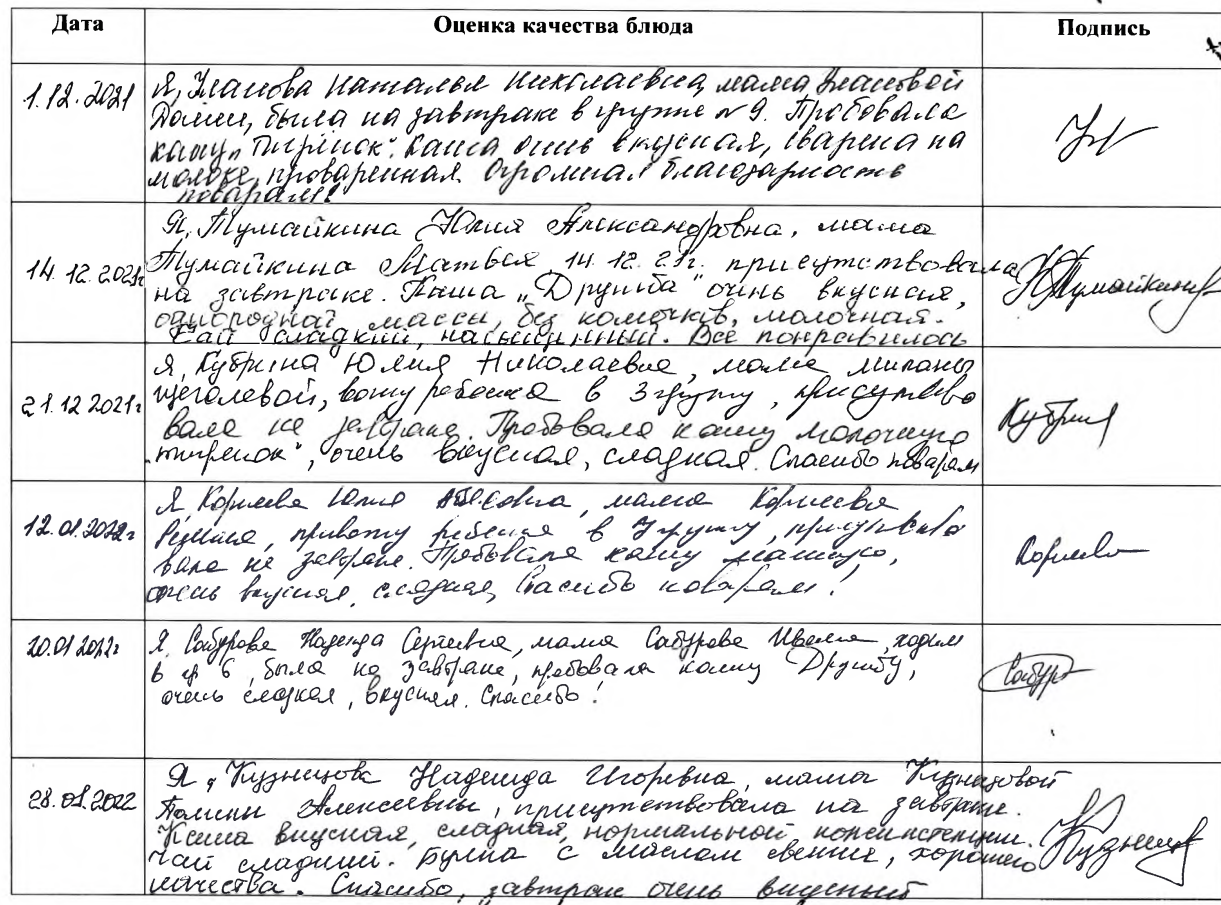 Дата Оценка качества блюда Подпись
1.12.2021 Я, Уланова Наталья Николаевна, мама Улановой
, была на завтраке в группе № 9. Пробовала
кашу „Тигрёнок“. Каша очень вкусная, сварена на
молоке, проваренная. Огромная благодарность
поварам!!
Я, Тумайкина Юлия Александровна, мама
14.12.2021г Тумайкина Матвея 14.12.21г. присутствовала
на завтраке. Каша „Дружба“ очень вкусная,
однородной массы, без комочков, молочная.
Чай сладкий, насыщенный. Всё понравилось
Тумайкина
Я, Кубрина Юлия Николаевна, мама Миланы
21.12 2021г Щеголевой, вожу ребенка в 3 группу, присутство
вала на завтраке. Пробовала кашу молочную
„тигренок“, очень вкусная, сладкая. Спасибо поварам
Кубрина
Я, Корнеева Юлия , мама Корнеева
12.01.2022г , привожу ребенка в группу, присутство
вала на завтраке. Пробовала кашу манную,
очень вкусная, сладкая, Спасибо поварам!
Корнеева
20.01 2022г Я, Сабурова Надежда Сергеевна, мама Сабурова Ивана, ходим
в гр 6, была на завтраке, пробовала кашу Дружбу,
очень сладкая, вкусная. Спасибо!
Сабур
Я, Кузнецова Надежда Игоревна, мама Кузнецовой
28.01.2022 Полины Алексеевны, присутствовала на завтраке.
Каша вкусная, сладкая, нормальной консистенции.
Чай сладкий. Булка с маслом свежие, хорошего
качества. Спасибо, завтрак очень вкусный
Кузнецов